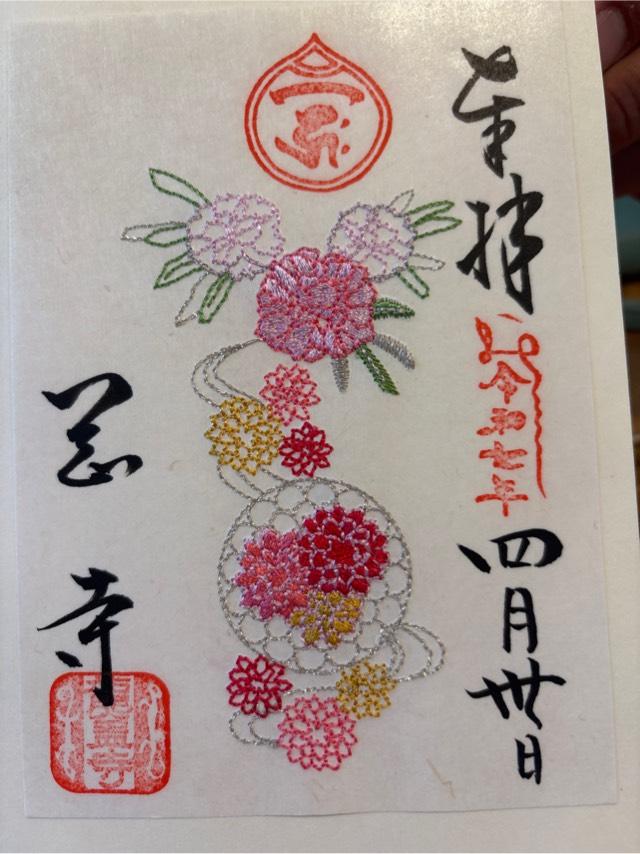 奉拝
令和七年
四月卅日
岡寺